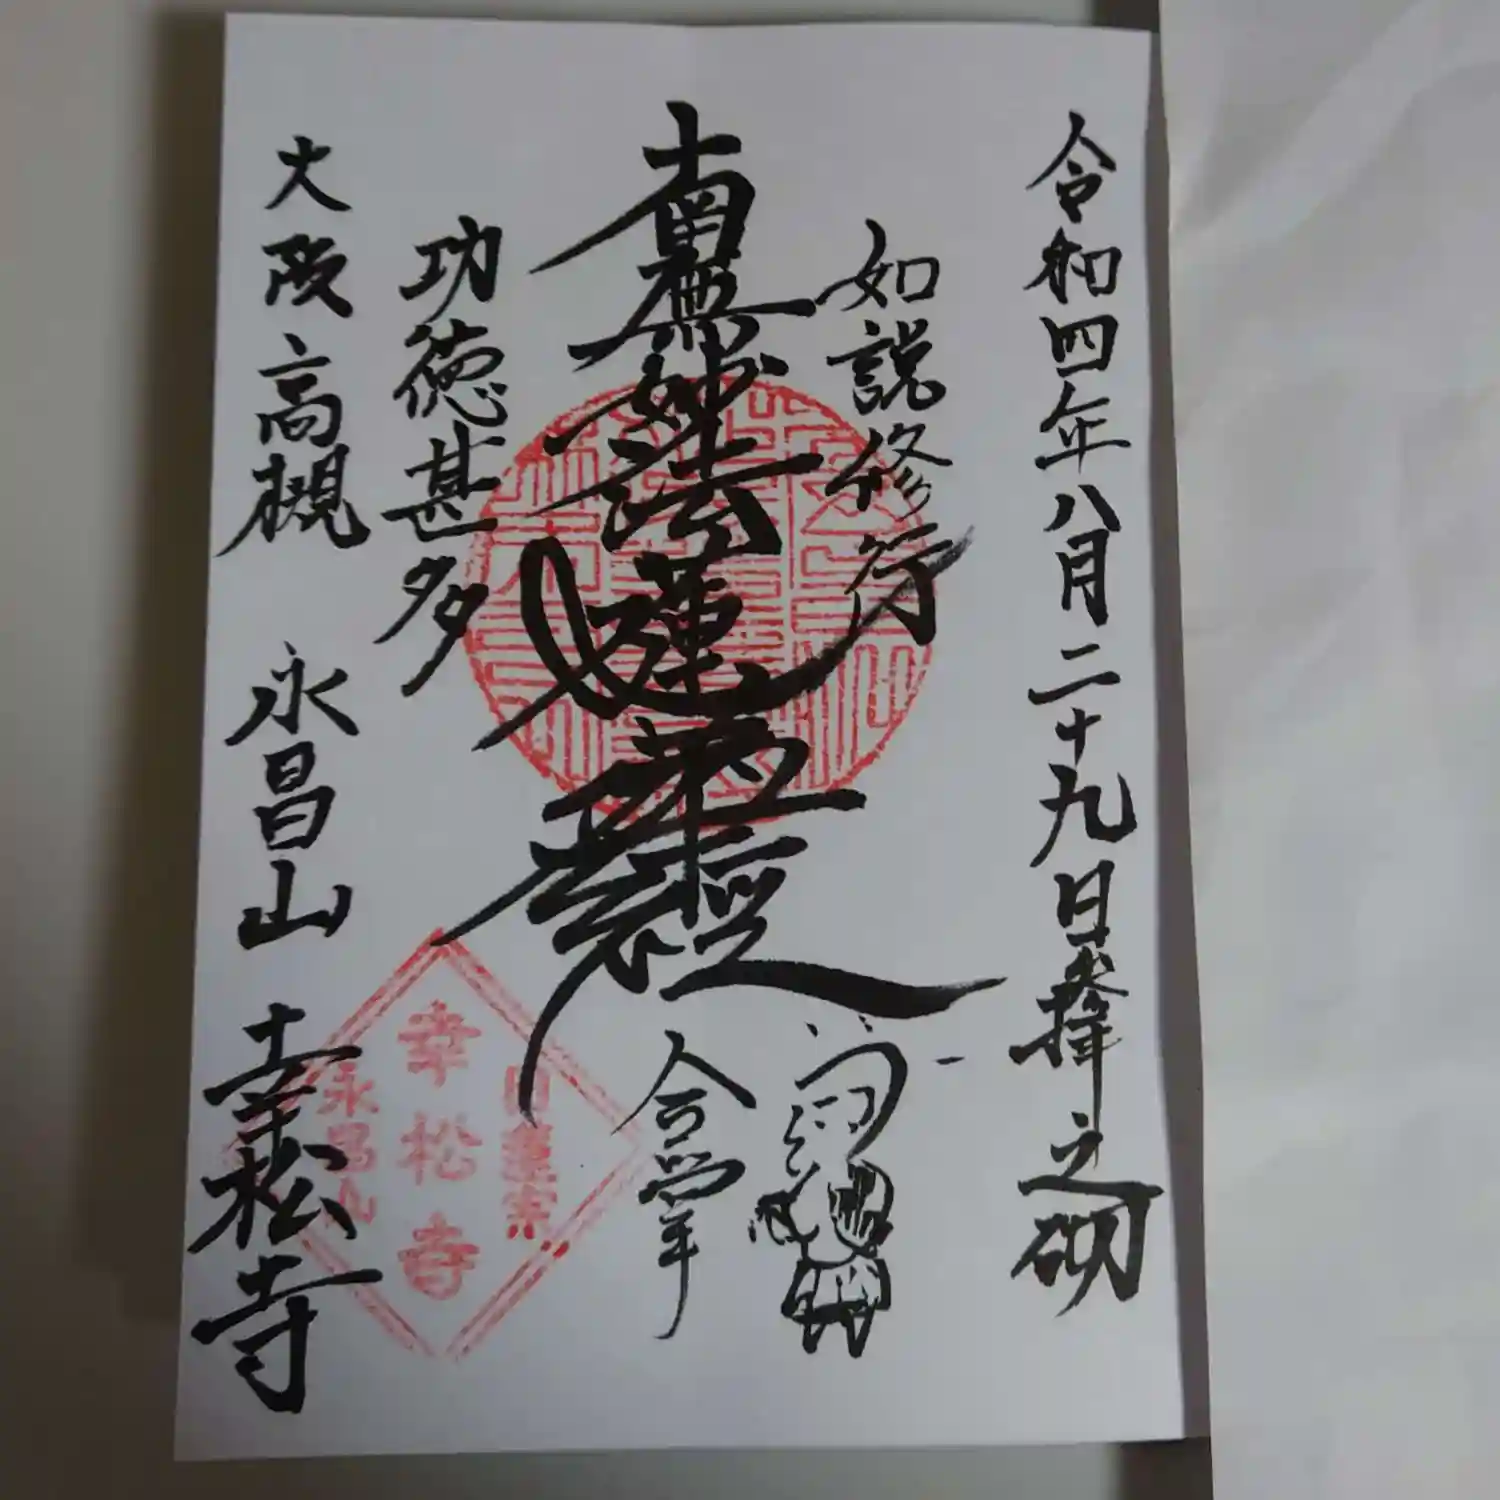 令和四年八月二十九日拝之砌
如説修行
南無妙法蓮華経
合掌
功徳甚多
大阪高槻 永昌山 幸松寺
日蓮宗
幸松寺
永昌山